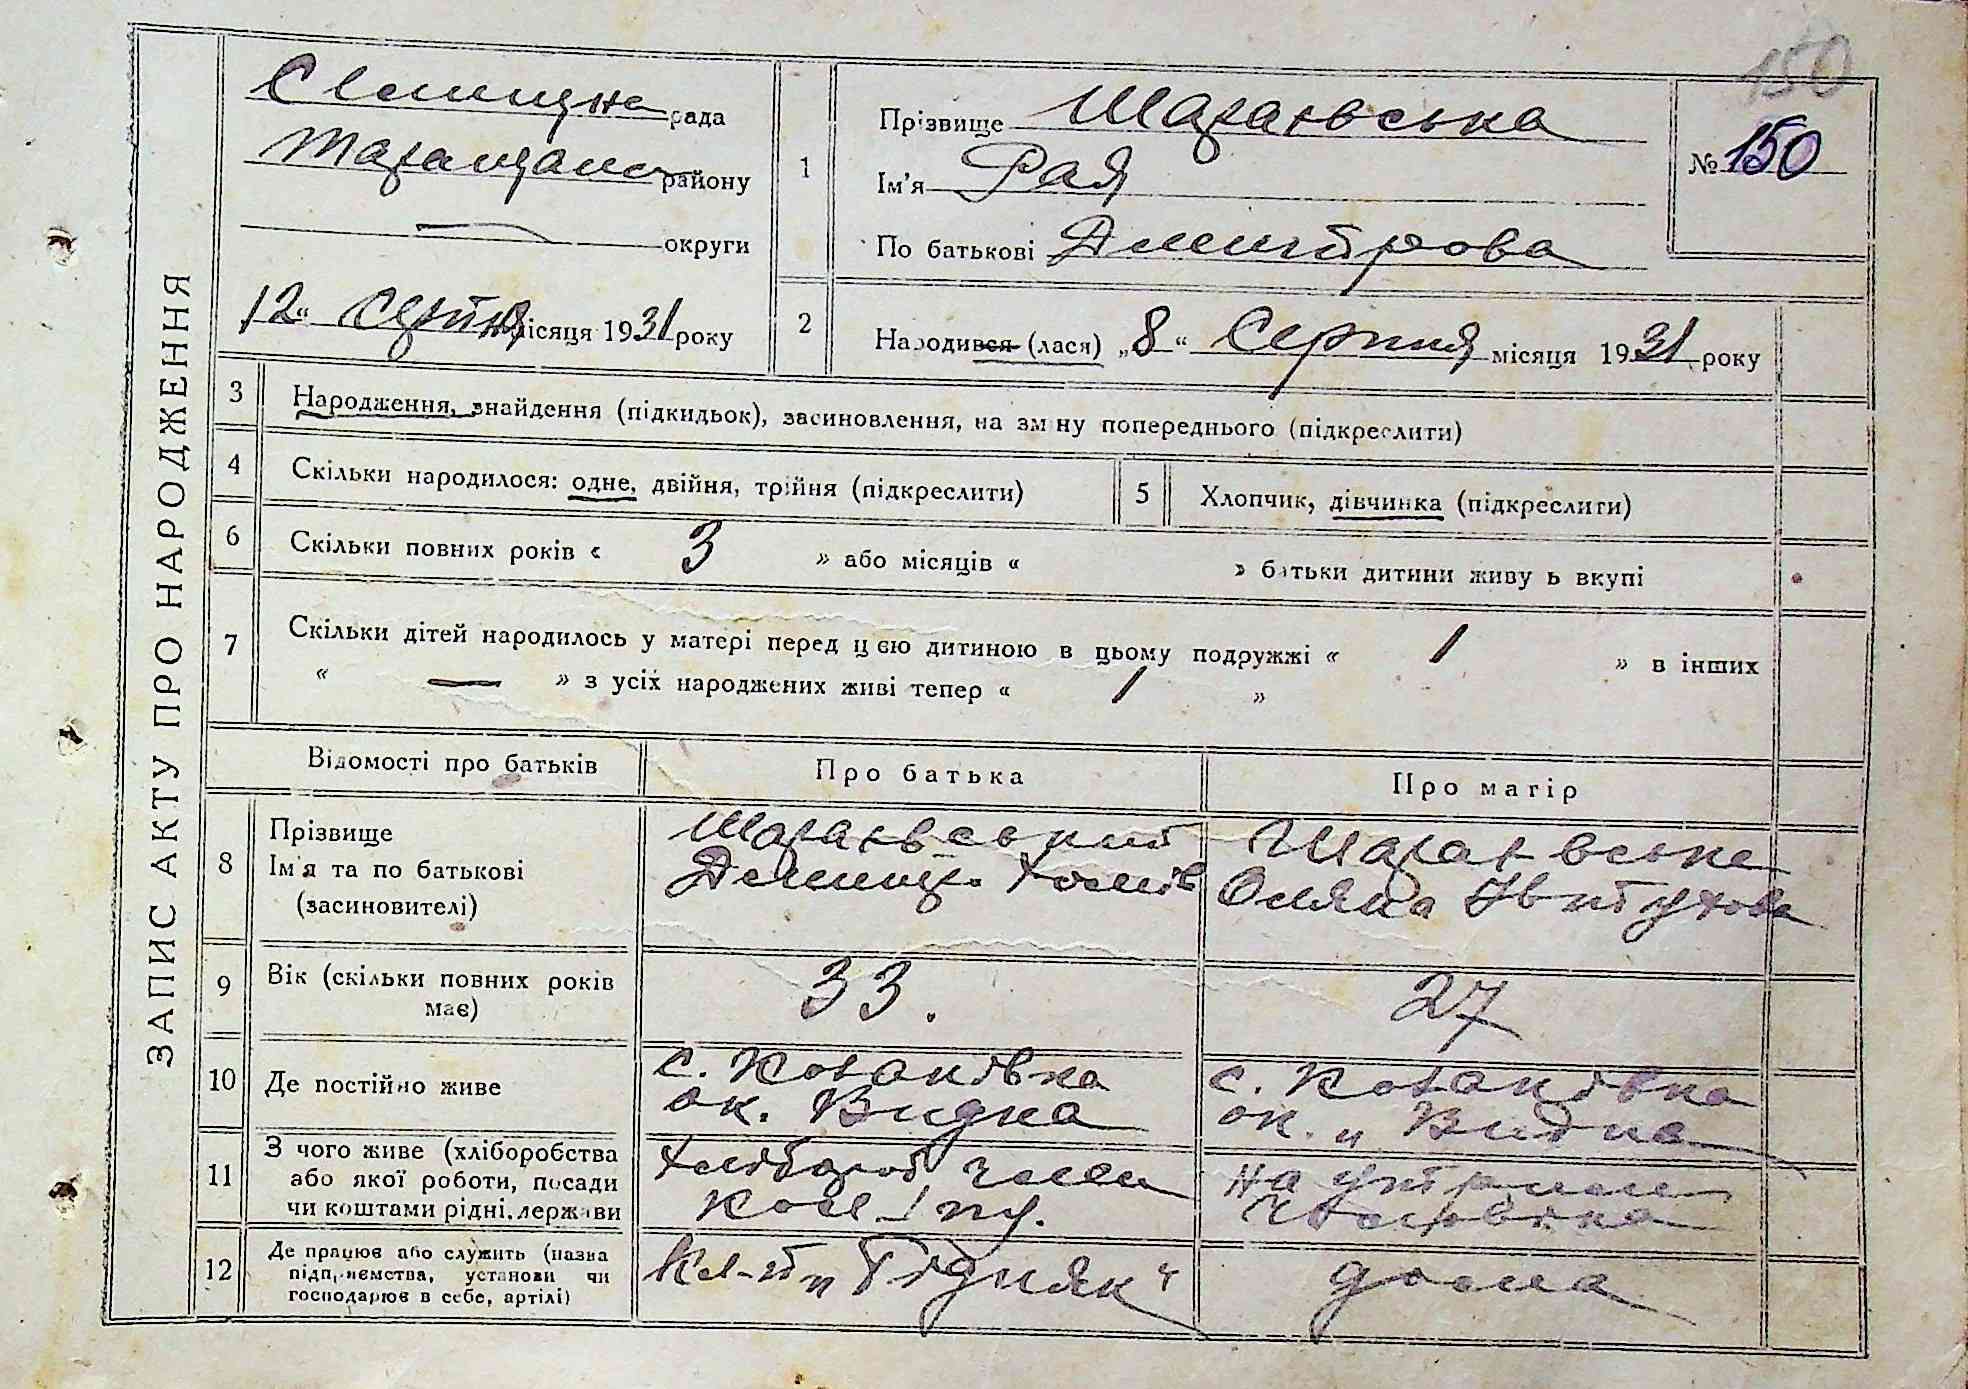 150
ЗАПИС АКТУ ПРО НАРОДЖЕННЯ
рада
району
округи
12 “ місяця 1931 року
1
Прізвище
Ім'я Рая
По батькові Дмитрова
№ 150
2
Народився (лася) „ 8 “ Серпня місяця 1931 року
3
Народження, знайдення (підкидьок), засиновлення, на зміну попереднього (підкреслити)
4
Скільки народилося: одне, двійня, трійня (підкреслити)
5
Хлопчик, дівчинка (підкреслити)
6
Скільки повних років « 3 » або місяців « » батьки дитини живуть вкупі
7
Скільки дітей народилось у матері перед цією дитиною в цьому подружжі « 1 » в інших
« — » з усіх народжених живі тепер « 1 »
Відомості про батьків
Про батька
Про матір
8
Прізвище
Ім'я та по батькові
(засиновителі)
Хомів
Оляна
9
Вік (скільки повних років
має)
33.
27
10
Де постійно живе
с. Козаківка
ок. Видка
с. Козаківка
ок. „
11
З чого живе (хліборобства
або якої роботи, посади
чи коштами рідні, держави
Хлібороб член
на утриман
чоловіка
12
Де працює або служить (назва
підприємства, установи чи
господарює в себе, артілі)
дома